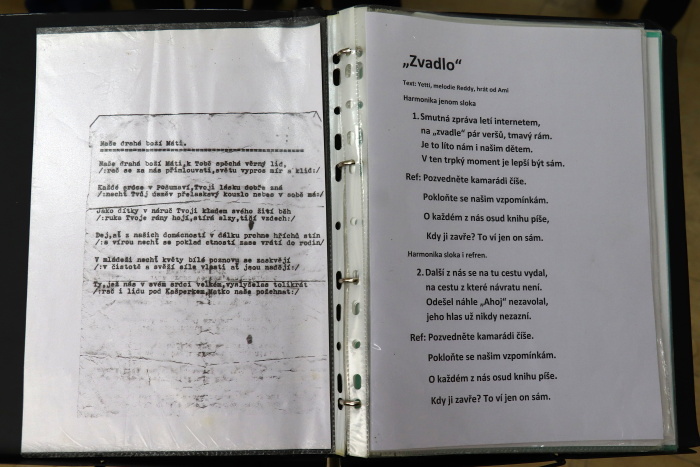 Naše drahá boží Máti.
Naše drahá boží Máti,k Tobě spěchá věrný lid,
/:rač se za nás přimlouvati,světu vypros mír a klid:/
Každé srdce v Pošumaví,Tvoji lásku dobře zná
/:nechť Tvůj deněv přelaskavý kouzlo nebes v sobě má:/
Jako dítky v náruč Tvoji kladem svého žití běh
/:ruka Tvoje rány hojí,stírá slzy,tiší vzdech:/
Dej,ať z našich domácností v dálku prchne hříchů stín
/:a vírou nechť se poklad ctností zase vrátí do rodin/
V mládeži nechť květy bílé poznovu se zaskvějí
/:v čistotě a svěží síle vlasti ať jsou nadějí:/
Ty,jež nás v svém srdci velkém,vyslyšelas tolikrát
/:rač i lidu pod Kašperkem,Matko naše požehnat:/
„Zvadlo“
Text: Yetti, melodie Reddy, hrát od Ami
Harmonika jenom sloka
1. Smutná zpráva letí internetem,
na „zvadle“ pár veršů, tmavý rám.
Je to líto nám i našim dětem.
V ten trpký moment je lepší být sám.
Ref: Pozvedněte kamarádi číše.
Pokloňte se našim vzpomínkám.
O každém z nás osud knihu píše,
Kdy ji zavře? To ví jen on sám.
Harmonika sloka i refren.
2. Další z nás se na tu cestu vydal,
na cestu z které návratu není.
Odešel náhle „Ahoj“ nezavolal,
jeho hlas už nikdy nezazní.
Ref: Pozvedněte kamarádi číše.
Pokloňte se našim vzpomínkám.
O každém z nás osud knihu píše.
Kdy ji zavře? To ví jen on sám.